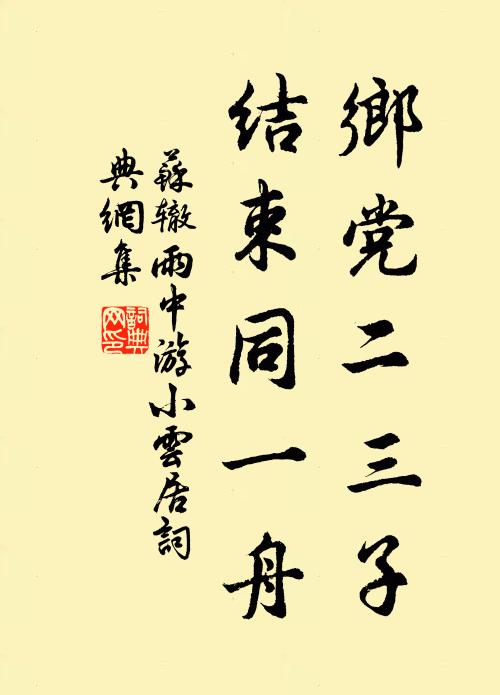 鄉党二三子
結束同一舟
蘇辙雨中游小雲居詞
典網集
詞典
网印